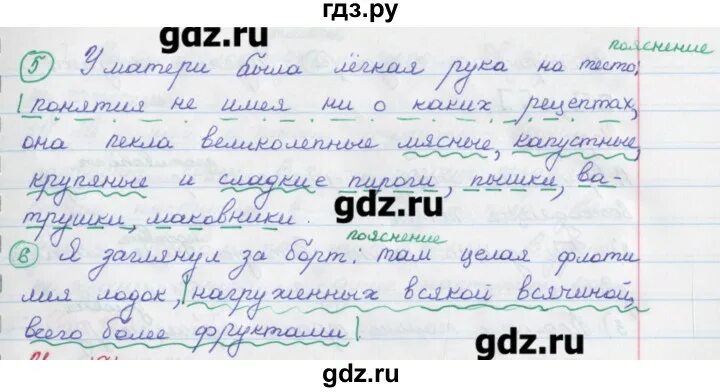 гдз.ру
gdz.ru
пояснение
5 У матери была лёгкая рука на тесто:
понятия не имея ни о каких рецептах,
она пекла великолепные мясные, капустные,
крупяные и сладкие пироги, пышки, ва-
трушки, маковники.
gdz.ru
пояснение
в Я заглянул за борт: там целая флоти
лия лодок, нагруженных всякой всячиной,
всего более фруктами
gdz.ru
gdz.ru